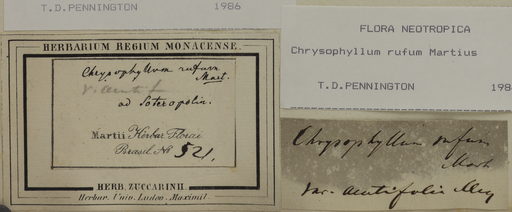 T.D.PENNINGTON 1986
HERBARIUM REGIUM MONACENSE.
Chrysophyllum rufum
Mart.
ad Soteropolin.
Martii Herbar. Florae
Brasil. No 521.
HERB. ZUCCARINII
Herbar. Univ. Ludov. Maximil
FLORA NEOTROPICA
Chrysophyllum rufum Martius
T.D.PENNINGTON 198
Chrysophyllum rufum
Mart.
var. acutifolia Miq